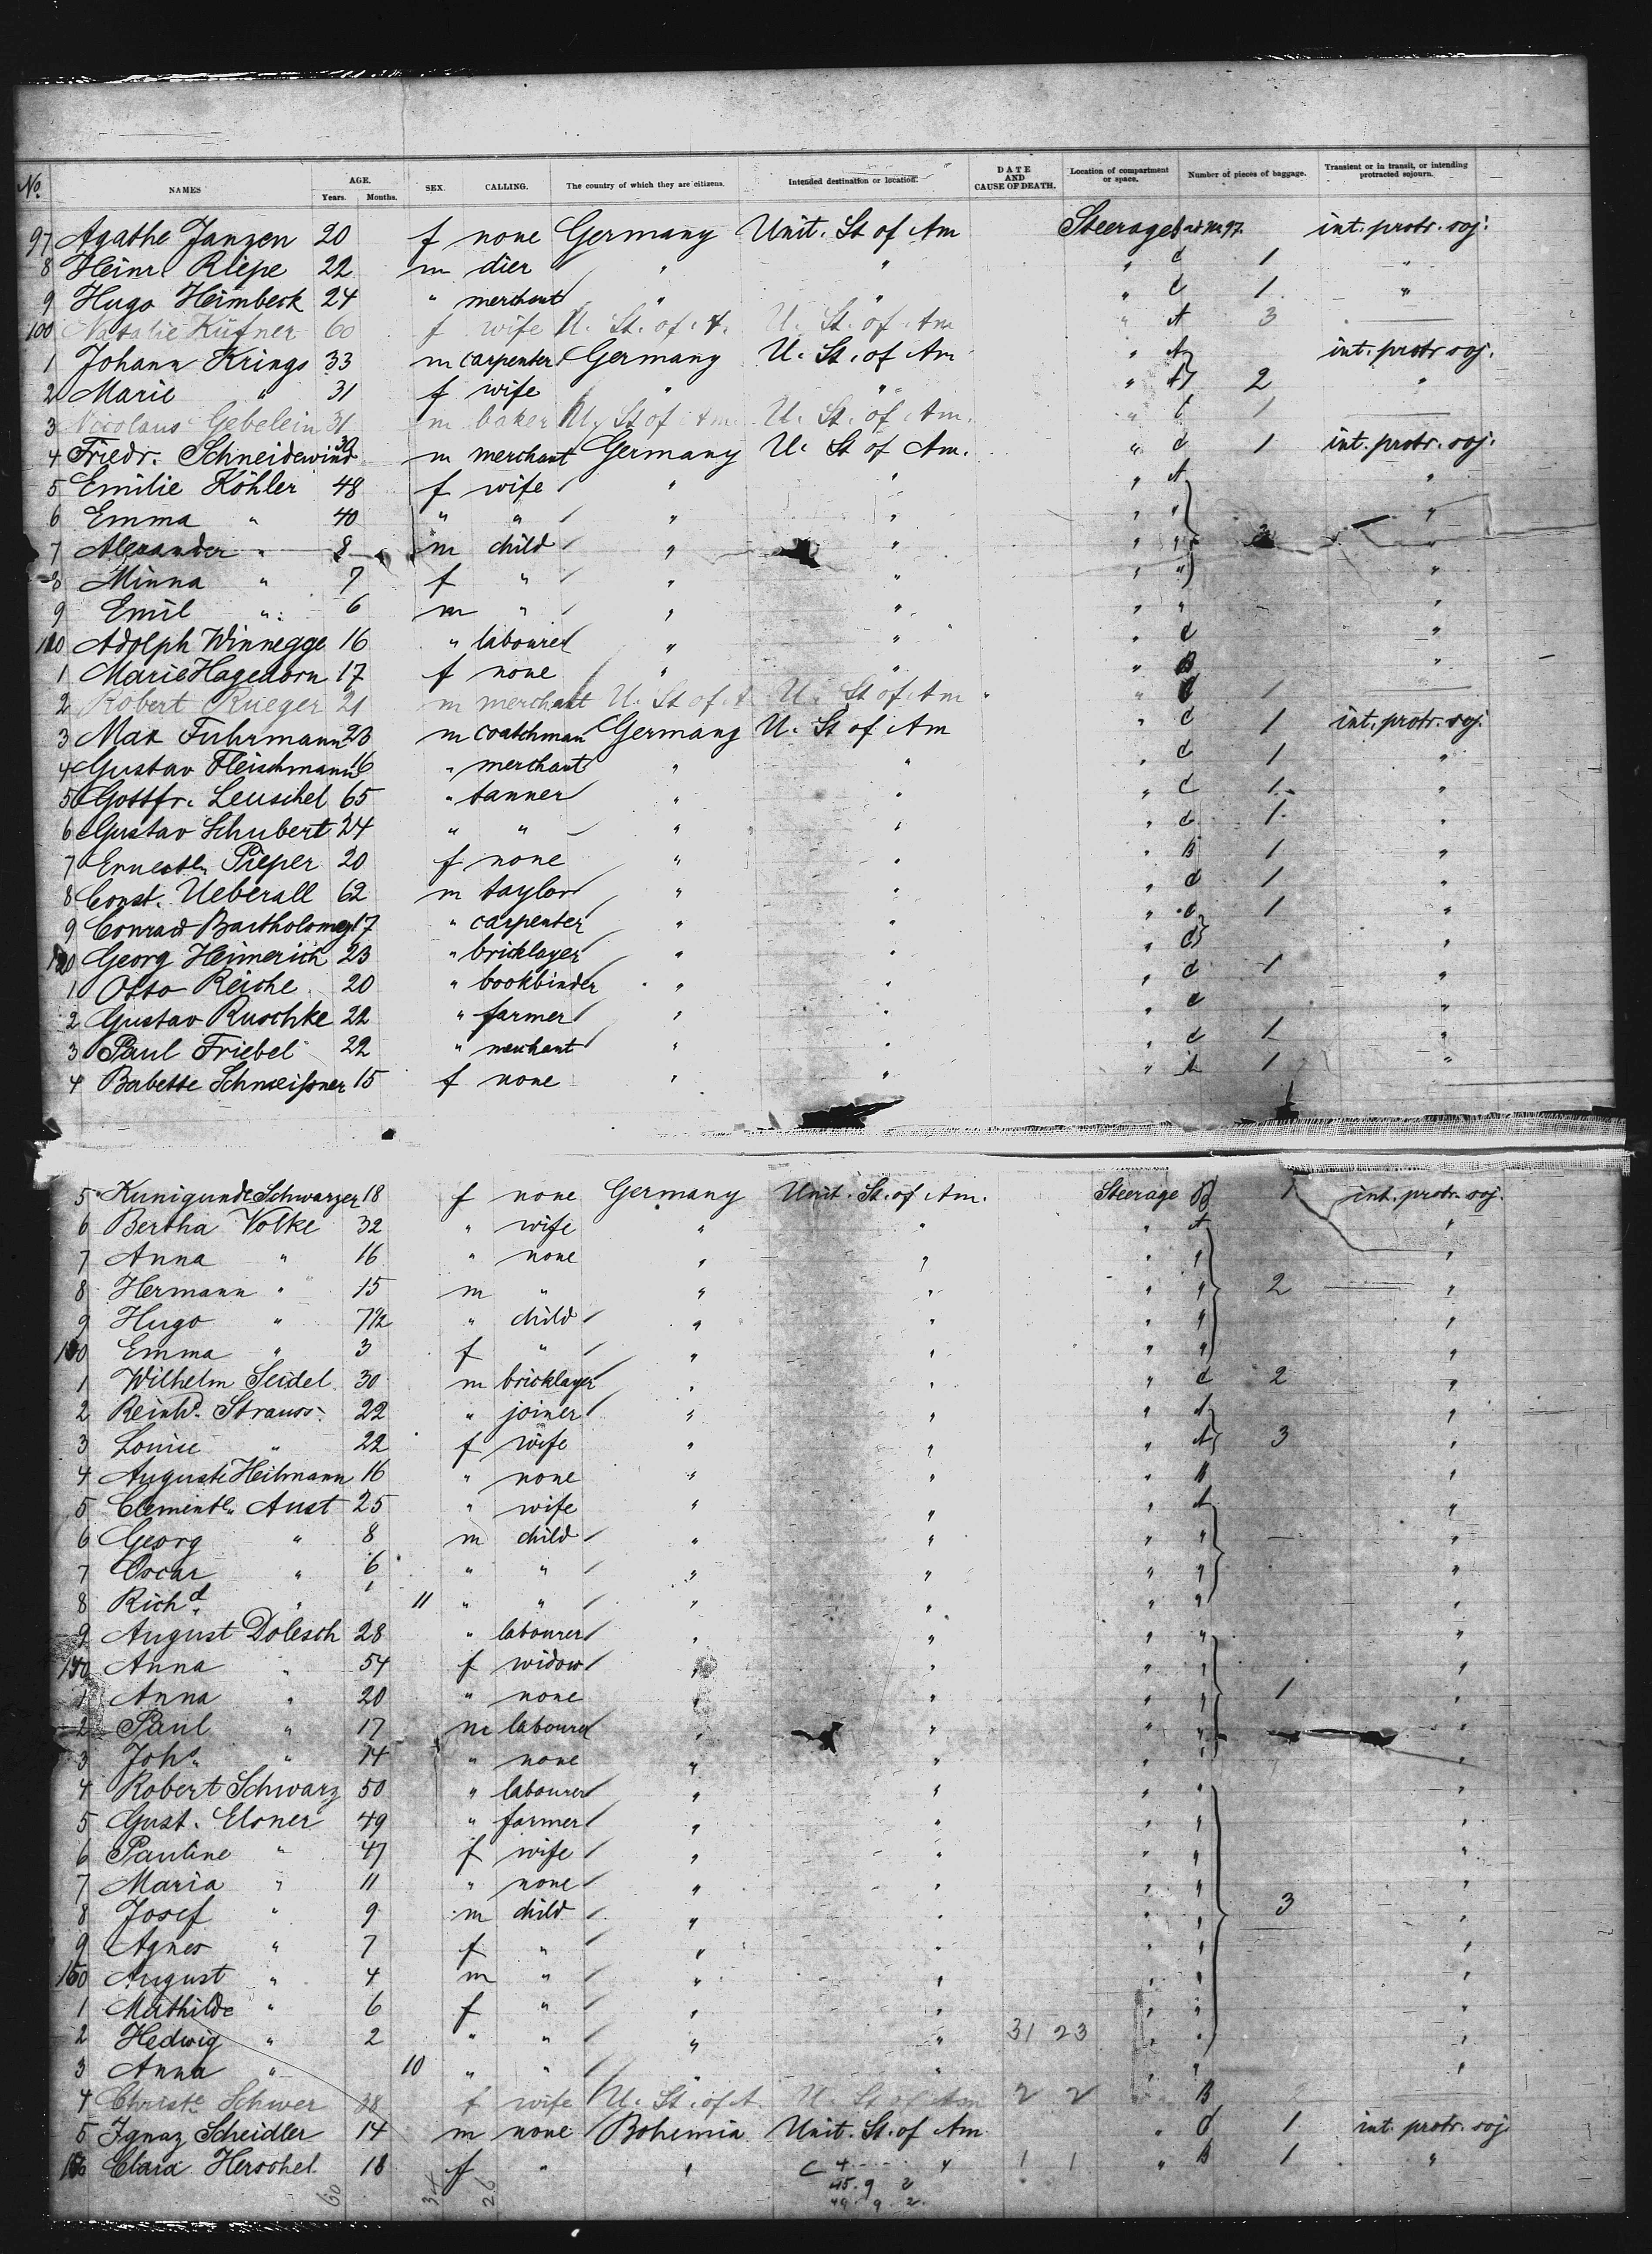 No. NAMES AGE. Years. Months. SEX. CALLING. The country of which they are citizens. Intended destination or location. DATE AND CAUSE OF DEATH. Location of compartment or space. Number of pieces of baggage. Transient or in transit, or intending protracted sojourn.
97 Agathe Janzen 20 f none Germany Unit. St of Am Steerage int. protr. soj.
8 Heinr. Riepe 22 m dier " " " C 1 "
9 Hugo Heimbeck 24 " merchant " " " C 1 "
100 Natalie Küfner 60 f wife U. St. of A. U. St. of Am " A 3 —
1 Johann Krings 33 m carpenter Germany U. St. of Am " A int. protr soj.
2 Marie " 31 f wife " " " A 2 "
3 Nicolaus Gebelein 31 m baker U. St of Am U. St. of Am. " C 1 —
4 Friedr. Schneidewind 30 m merchant Germany U. St of Am. " C 1 int. protr. soj.
5 Emilie Köhler 48 f wife " " " A "
6 Emma " 40 " " " " " " "
7 Alexander " 8 m child " " " " 3 "
8 Minna " 7 f " " " " " "
9 Emil " 6 m " " " " " "
110 Adolph Winnegge 16 " labourer " " " C "
1 Marie Hagedorn 17 f none " " " B "
2 Robert Rueger 21 m merchant U. St of A U. St of Am " C 1 —
3 Max Fuhrmann 23 m coatchman Germany U. St of Am " C 1 int. protr. soj.
4 Gustav Fleischmann 16 " merchant " " " C 1 "
5 Gottfr. Leuschel 65 " tanner " " " C 1 "
6 Gustav Schubert 24 " " " " " C 1 "
7 Ernestn. Pieper 20 f none " " " B 1 "
8 Const. Ueberall 62 m taylor " " " C 1 "
9 Conrad Bartholomey 17 " carpenter " " " C 1 "
120 Georg Heimerich 23 " bricklayer " " " C "
1 Otto Reiche 20 " bookbinder " " " C 1 "
2 Gustav Ruschke 22 " farmer " " " C "
3 Paul Friebel 22 " merchant " " " C 1 "
4 Babette Schmeißner 15 f none " " " A 1 "
5 Kunigunde Schwarzer 18 f none Germany Unit. St. of Am. Steerage B 1 int. protr. soj.
6 Bertha Volke 32 " wife " " " A "
7 Anna " 16 " none " " " " "
8 Hermann " 15 m " " " " " 2 "
9 Hugo " 7½ " child " " " " "
130 Emma " 3 f " " " " " "
1 Wilhelm Seidel 30 m bricklayer " " " C 2 "
2 Reinhd. Strauss 22 " joiner " " " A "
3 Louise " 22 f wife " " " A 3 "
4 Auguste Heilmann 16 " none " " " B "
5 Clementn. Aust 25 " wife " " " A "
6 Georg " 8 m child " " " " "
7 Oscar " 6 " " " " " " "
8 Richd. " 11 " " " " " " "
9 August Dolesch 28 " labourer " " " " "
140 Anna " 54 f widow " " " " "
1 Anna " 20 " none " " " " 1 "
2 Paul " 17 m labourer " " " " "
3 Johs. " 14 " none " " " " "
4 Robert Schwarz 50 " labourer " " " " "
5 Gust. Elsner 49 " farmer " " " " "
6 Pauline " 47 f wife " " " " "
7 Maria " 11 " none " " " " "
8 Josef " 9 m child " " " " 3 "
9 Agnes " 7 f " " " " " "
150 August " 4 m " " " " " "
1 Mathilde " 6 f " " " " " "
2 Hedwig " 2 " " " " 31 23 " " "
3 Anna " 10 " " " " " " "
4 Christe Schwer 38 f wife U. St. of A. U. St of Am 2 2 " B 2 —
5 Ignaz Scheidler 14 m none Bohemia Unit. St. of Am. " C 1 int. protr. soj.
156 Clara Herschel 18 f " " C 4 4 1 1 " B 1 "
60 34 26 45. 9 2
49. 9 2.